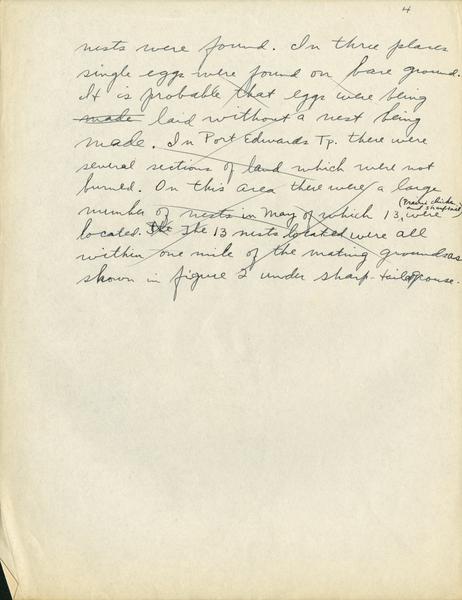 4
nests were found. In three places
single eggs were found on bare ground.
It is probable that eggs were being
made laid without a nest being
made. In Port Edwards Tp. there were
several sections of land which were not
burned. On this area there were a large
number of nests in May of which 13 (Prairie chicken and sharptail) were
located. The The 13 nests located were all
within one mile of the mating grounds as
shown in figure 2 under sharp-tail grouse.